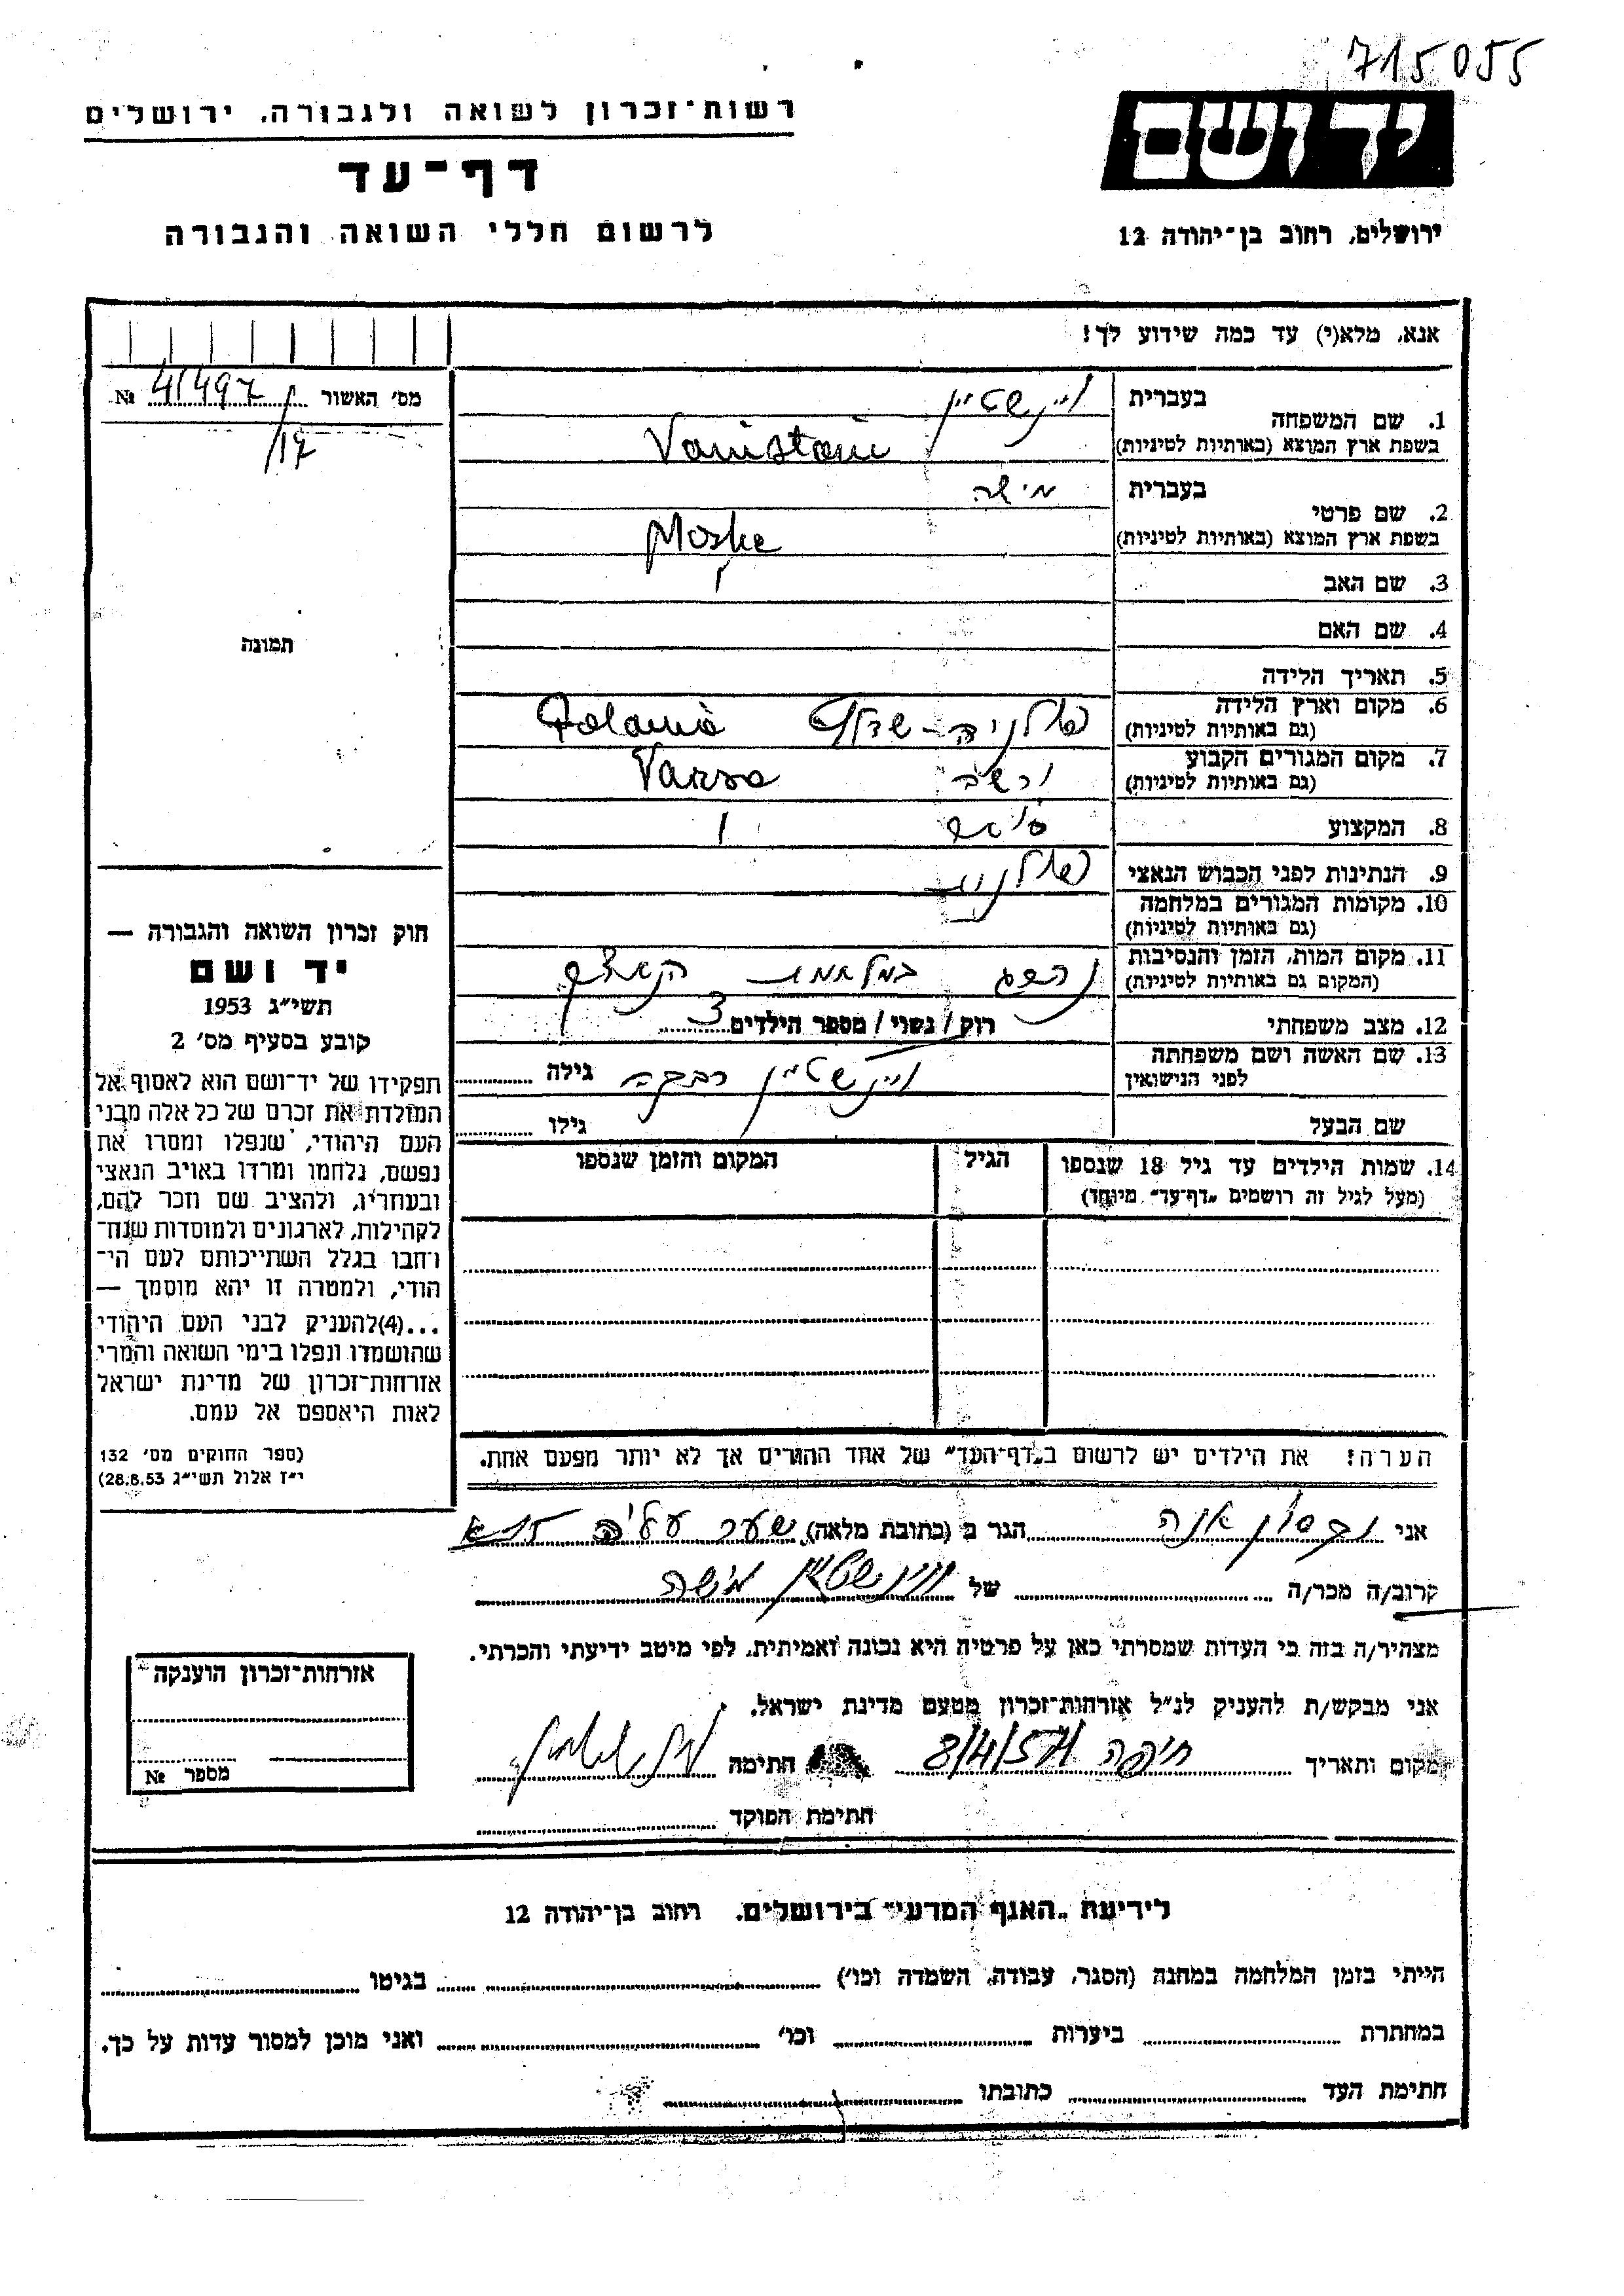 715055
רשות־זכרון לשואה ולגבורה, ירושלים
דף־עד
לרשום חללי השואה והגבורה
יד ושם
ירושלים, רחוב בן־יהודה 12
אנא, מלא(י) עד כמה שידוע לך!
מס׳ האשור 41497 №
/17
תמונה
1. שם המשפחה
בעברית ויינשטיין
בשפת ארץ המוצא (באותיות לטיניות) Vanistain
2. שם פרטי
בעברית מישה
בשפת ארץ המוצא (באותיות לטיניות) Moshe
3. שם האב
4. שם האם
5. תאריך הלידה
6. מקום וארץ הלידה
(גם באותיות לטיניות) פולניה - Polania
7. מקום המגורים הקבוע
(גם באותיות לטיניות) ורשה Varsa
8. המקצוע
9. הנתינות לפני הכבוש הנאצי פולנית
10. מקומות המגורים במלחמה
(גם באותיות לטיניות)
11. מקום המות, הזמן והנסיבות
(המקום גם באותיות לטיניות) נהרג במלחמת
12. מצב משפחתי רוק / נשוי / מספר הילדים 3
13. שם האשה ושם משפחתה
לפני הנישואין ויינשטיין רבקה גילה
שם הבעל גילו
14. שמות הילדים עד גיל 18 שנספו
(מעל לגיל זה רושמים „דף־עד” מיוחד)
הגיל
המקום והזמן שנספו
חוק זכרון השואה והגבורה —
יד ושם
תשי״ג 1953
קובע בסעיף מס׳ 2
תפקידו של יד־ושם הוא לאסוף אל
המולדת את זכרם של כל אלה מבני
העם היהודי, שנפלו ומסרו את
נפשם, נלחמו ומרדו באויב הנאצי
ובעוזריו, ולהציב שם וזכר להם,
לקהילות, לארגונים ולמוסדות שנח־
רחבו בגלל השתייכותם לעם הי־
הודי, ולמטרה זו יהא מוסמך —
...(4)להעניק לבני העם היהודי
שהושמדו ונפלו בימי השואה והמרי
אזרחות־זכרון של מדינת ישראל
לאות היאספם אל עמם.
(ספר החוקים מס׳ 132
י״ז אלול תשי״ג 28.8.53)
הערה! את הילדים יש לרשום ב„דף־העד” של אחד ההורים אך לא יותר מפעם אחת.
אני אנה הגר ב (כתובת מלאה) שער עליה 15א
קרוב/ה מכר/ה של ויינשטיין מישה
מצהיר/ה בזה כי העדות שמסרתי כאן על פרטיה היא נכונה ואמיתית, לפי מיטב ידיעתי והכרתי.
אני מבקש/ת להעניק לנ״ל אזרחות־זכרון מטעם מדינת ישראל.
מקום ותאריך חיפה 8/4/57 חתימה
חתימת הפוקד
אזרחות־זכרון הוענקה
מספר №
לידיעת „האגף המדעי” בירושלים, רחוב בן־יהודה 12
הייתי בזמן המלחמה במחנה (הסגר, עבודה, השמדה וכו׳) בגיטו
במחתרת ביערות וכו׳ ואני מוכן למסור עדות על כך.
חתימת העד כתובתו